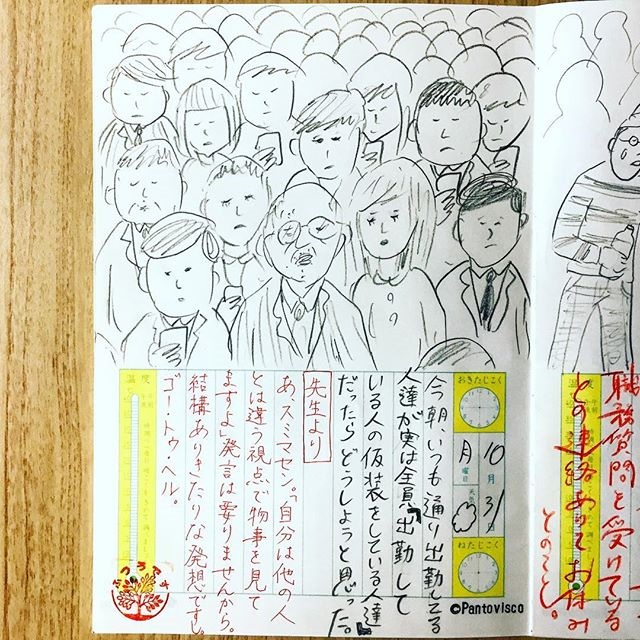 職務質問を受けている
との連絡ありてお休み
とのこと。
おきたじこく
10月31日
月曜日
ねたじこく
今朝いつも通り出勤してる
人達が実は全員「出勤して
いる人の仮装をしている人達」
だったらどうしようと思った。
先生より
あ、スミマセン。「自分は他の人
とは違う視点で物事を見て
ますよ」発言は要りませんから。
結構ありきたりな発想ですし。
ゴートゥ・ヘル。
温度
©Pantovisco